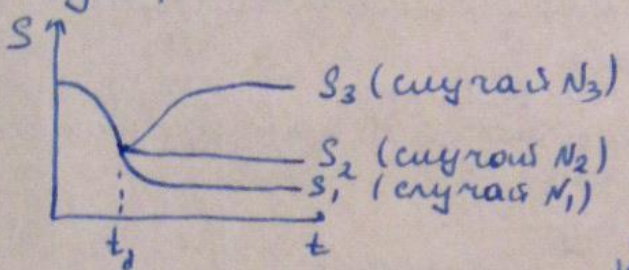 S
S₃ (случай N₃)
S₂ (случай N₂)
S₁ (случай N₁)
t₁
t